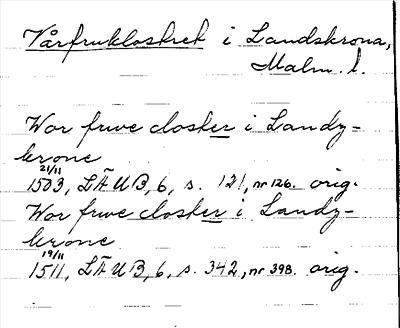 Vårfruklostret i Landskrona,
Malm. l.
Wor frwe closter i Landz-
krone
21/11
1503, LÄUB, 6, s. 121, nr 126. orig.
Wor frwe closter i Landz-
krone
19/11
1511, LÄUB, 6, s. 342, nr 398. orig.